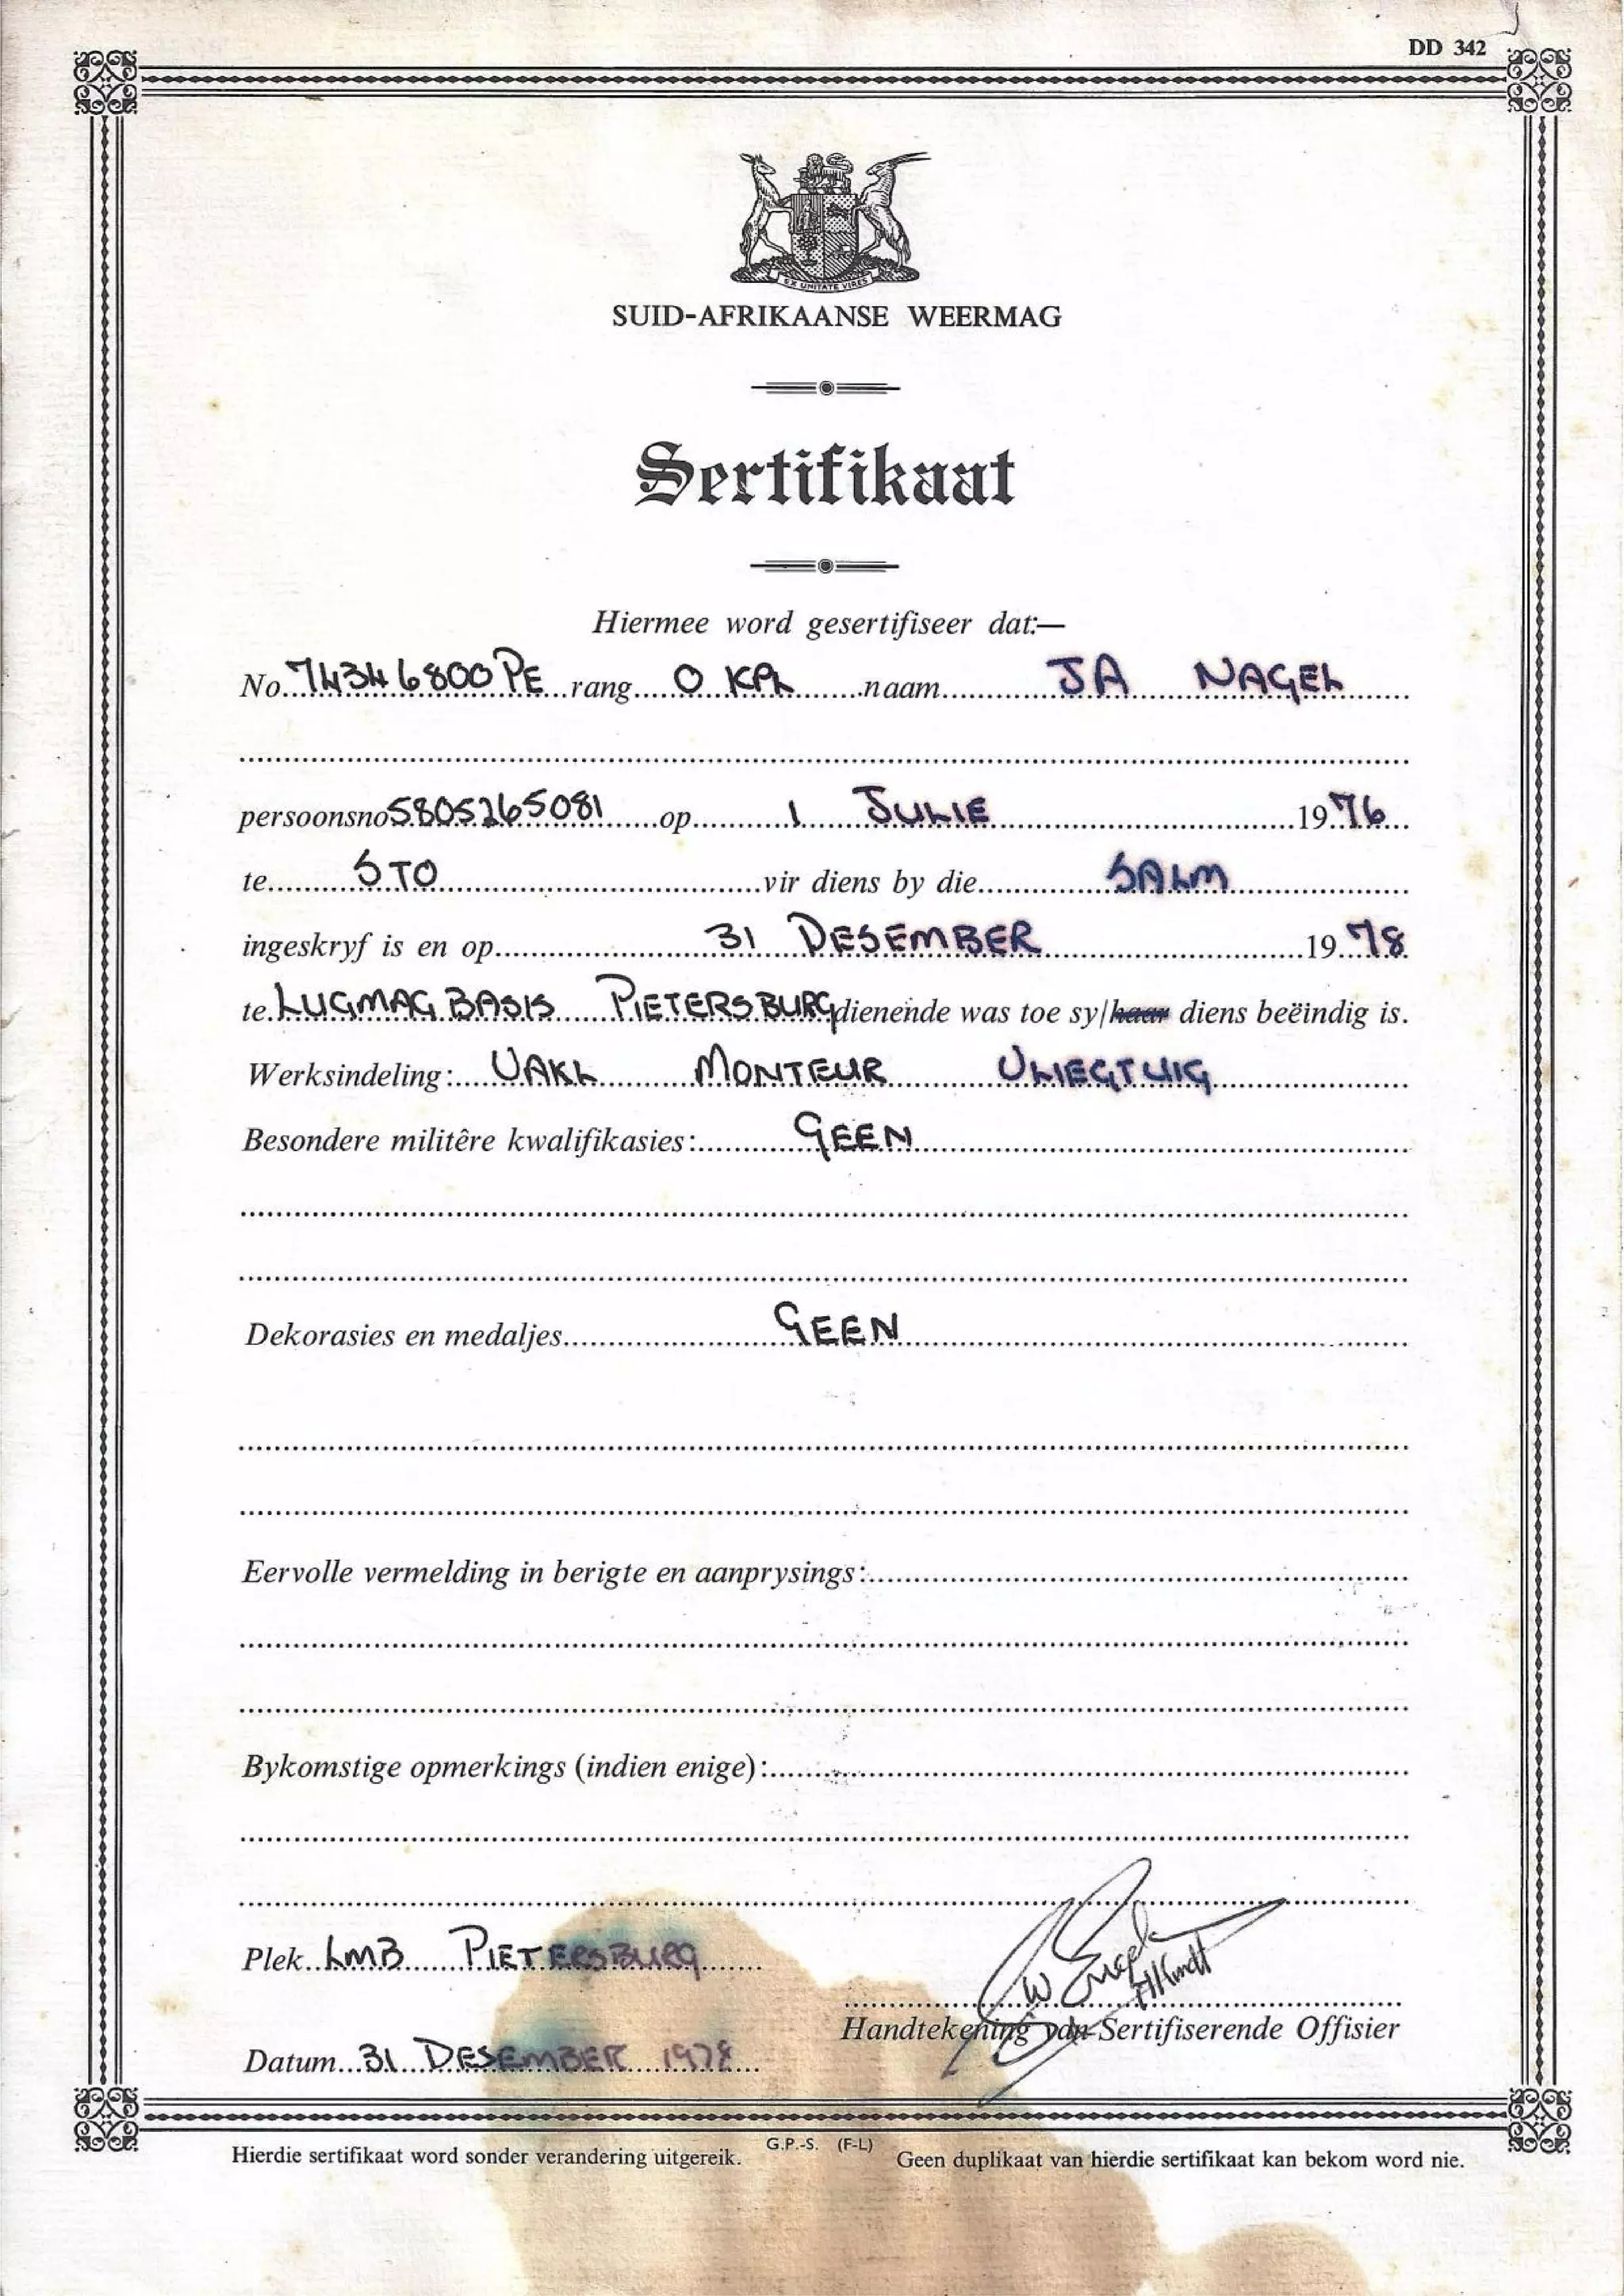 DD 342
EX UNITATE VIRES
SUID-AFRIKAANSE WEERMAG
Sertifikaat
Hiermee word gesertifiseer dat:—
No. 74346800PE rang O KPL naam JA NAGEL
persoonsno 5805265081 op 1 JULIE 1976
te STO vir diens by die SALM
ingeskryf is en op 31 DESEMBER 1978
te LUGMAG BASIS PIETERSBURG dienende was toe sy/haar diens beëindig is.
Werksindeling: VAKL MONTEUR VLIEGTUIG
Besondere militêre kwalifikasies: GEEN
Dekorasies en medaljes GEEN
Eervolle vermelding in berigte en aanprysings:
Bykomstige opmerkings (indien enige):
Plek LMB PIETERSBURG
Handtekening van Sertifiserende Offisier
Datum 31 DESEMBER 1978
Hierdie sertifikaat word sonder verandering uitgereik. G.P.-S. (F-L) Geen duplikaat van hierdie sertifikaat kan bekom word nie.